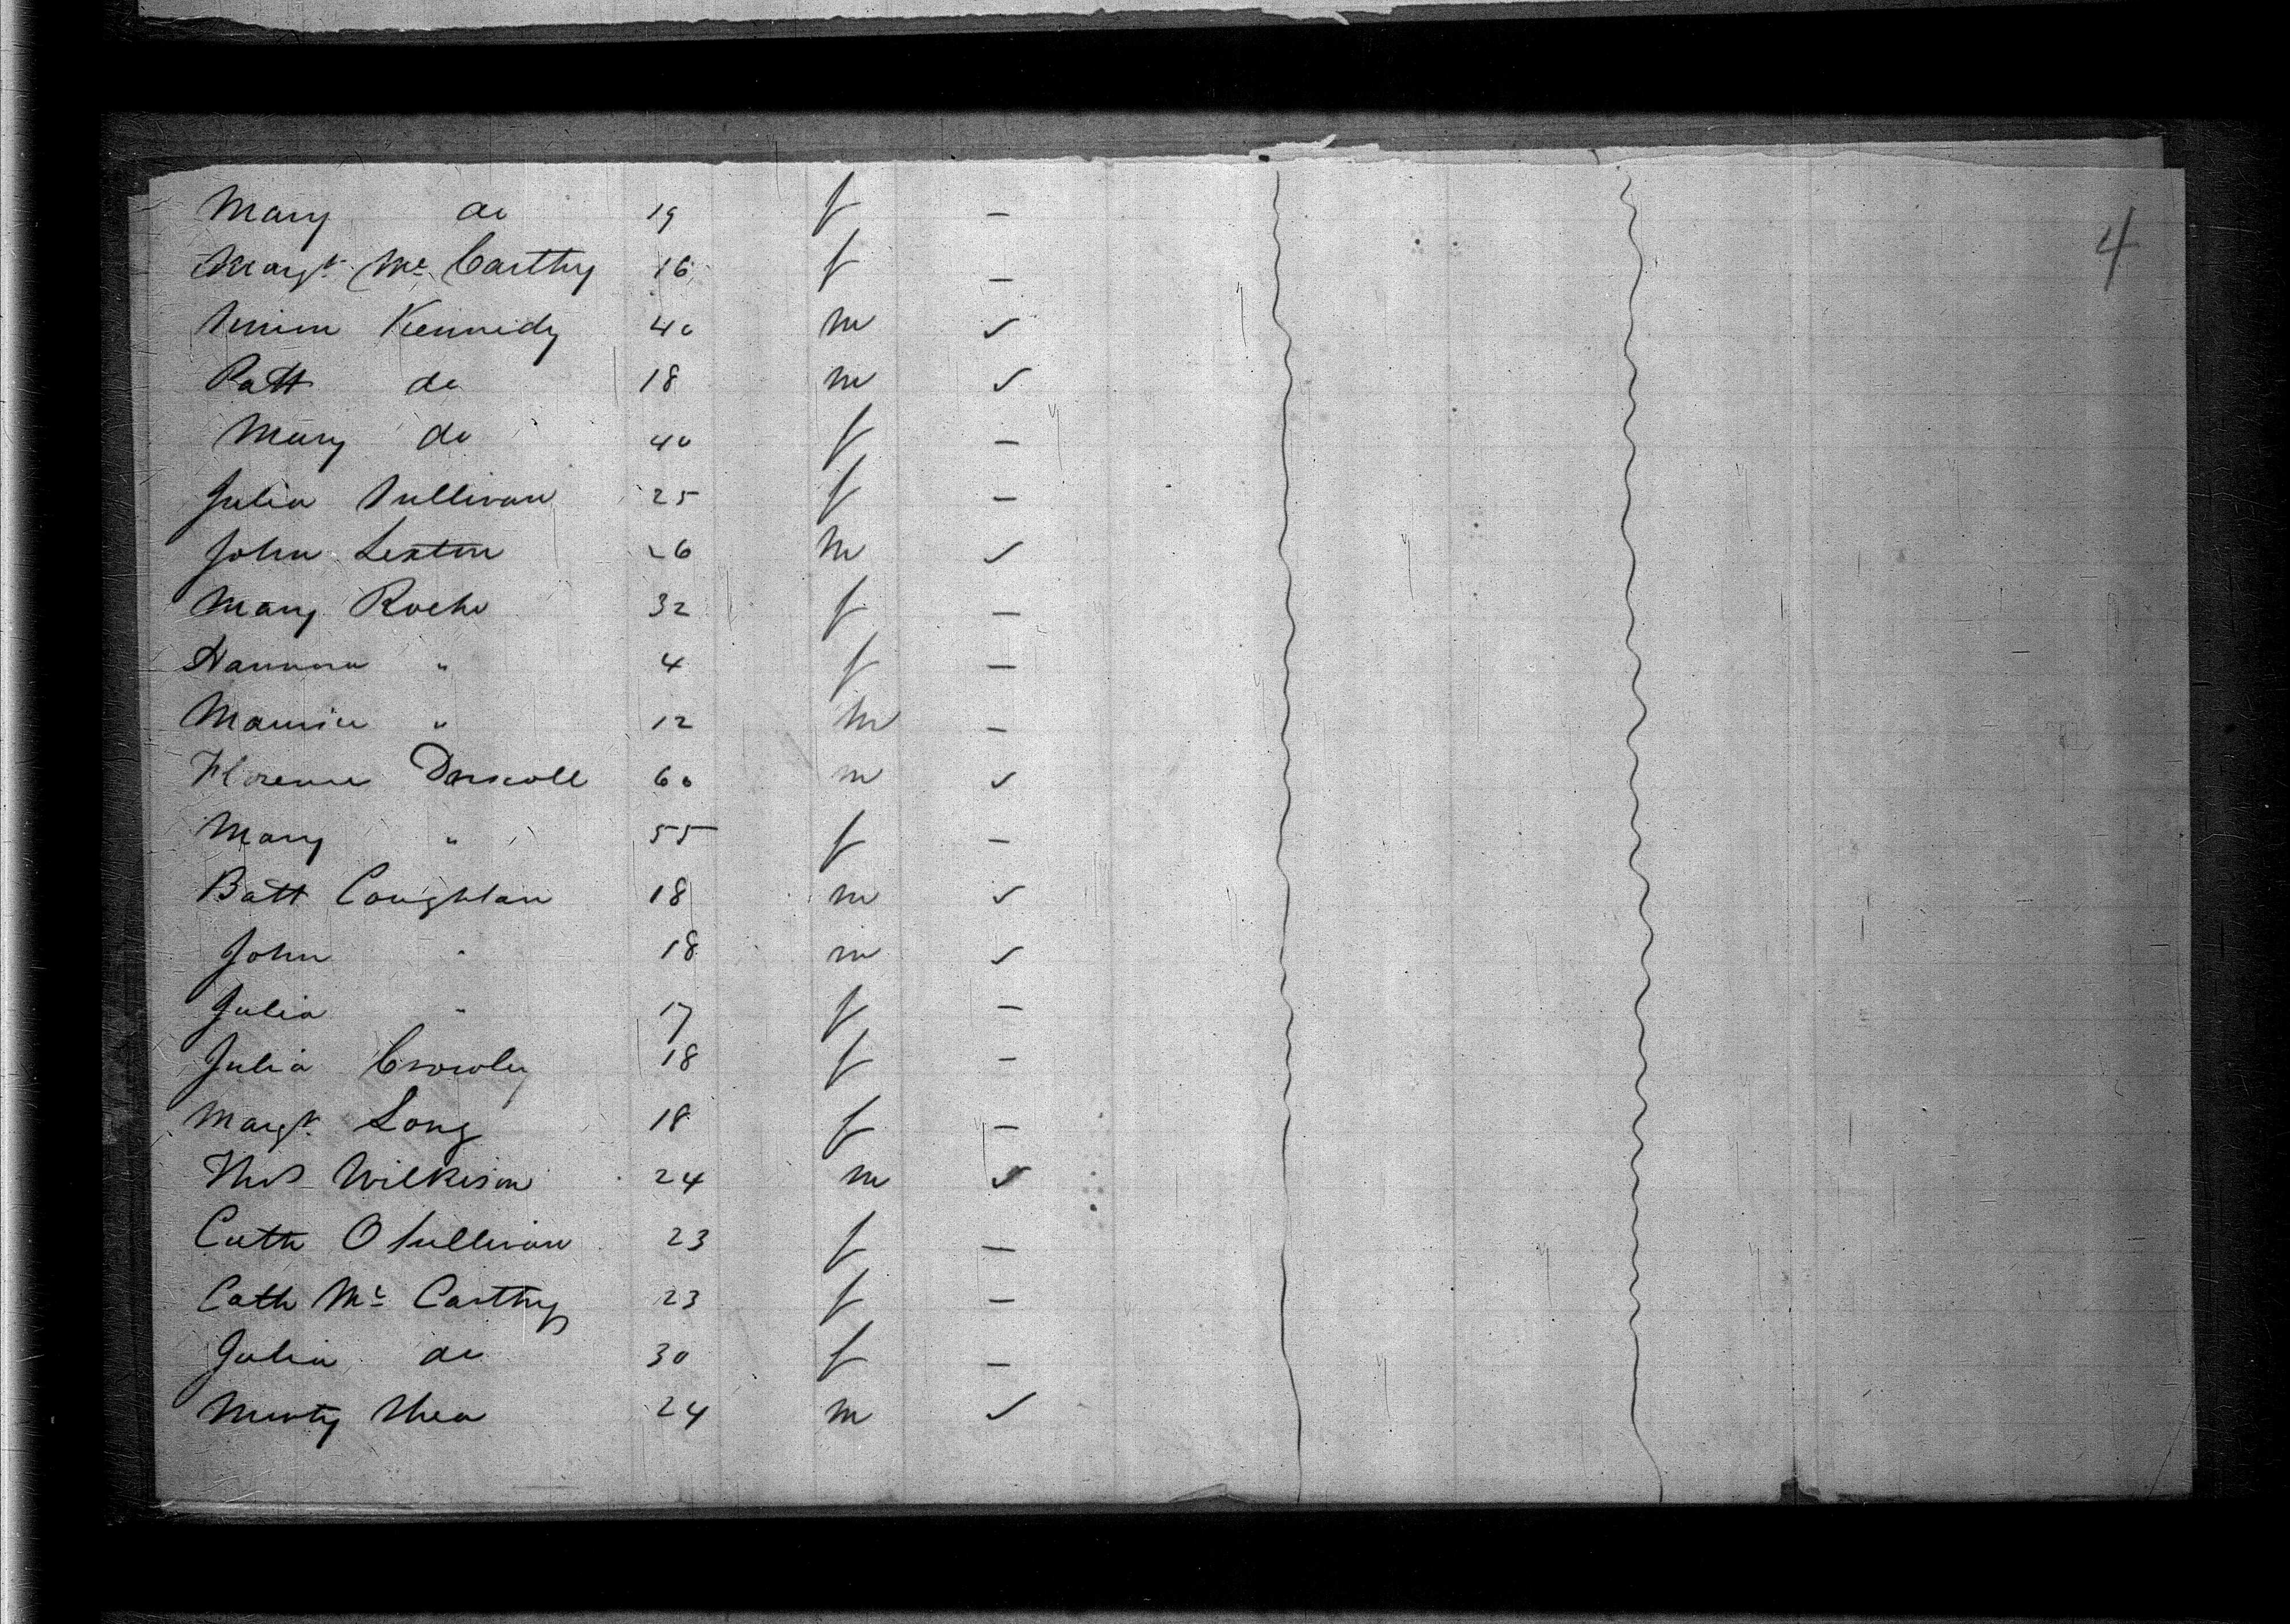 Mary do 19 f —
4
Margt. Mc Carthy 16 f —
Kennedy 40 m ✓
Patt do 18 m ✓
Mary do 40 f —
Julia Sullivan 25 f —
John Sexton 26 m ✓
Mary Roche 32 f —
Hannora " 4 f —
Maurice " 12 m —
Florence Driscoll 60 m ✓
Mary " 55 f —
Batt Coughlan 18 m ✓
John " 18 m ✓
Julia " 17 f —
Julia Crowley 18 f —
Margt. Long 18 f —
Thos Wilkison 24 m ✓
Cath O Sullivan 23 f —
Cath Mc Carthy 23 f —
Julia do 30 f —
Murty Shea 24 m ✓